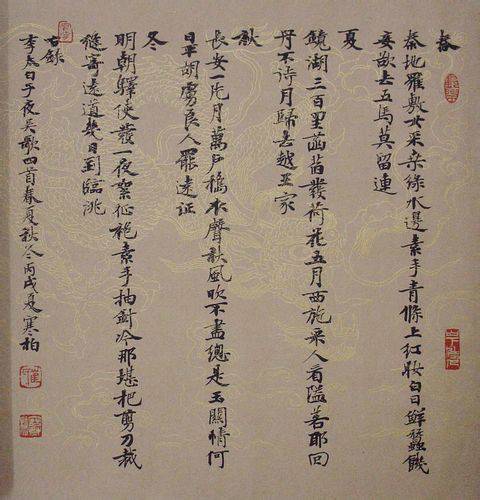 春
秦地羅敷女采桑綠水邊素手青條上红妝白日鮮蠶饑
妾欲去五馬莫留連
夏
鏡湖三百里菡萏發荷花五月西施采人看隘若耶回
舟不待月歸去越王家
秋
長安一片月萬戶擣衣聲秋風吹不盡總是玉關情何
日平胡虜良人罷遠征
冬
明朝驛使發一夜絮征袍素手抽針冷那堪把剪刀裁
縫寄遠道幾日到臨洮
右錄
李太白子夜吳歌四首春夏秋冬丙戌夏寒柏